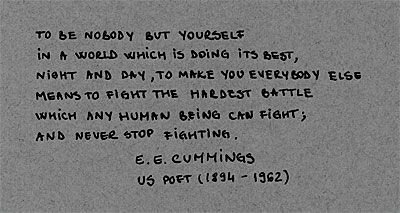 TO BE NOBODY BUT YOURSELF
IN A WORLD WHICH IS DOING ITS BEST,
NIGHT AND DAY, TO MAKE YOU EVERYBODY ELSE
MEANS TO FIGHT THE HARDEST BATTLE
WHICH ANY HUMAN BEING CAN FIGHT;
AND NEVER STOP FIGHTING.
E.E. CUMMINGS
US POET (1894 - 1962)